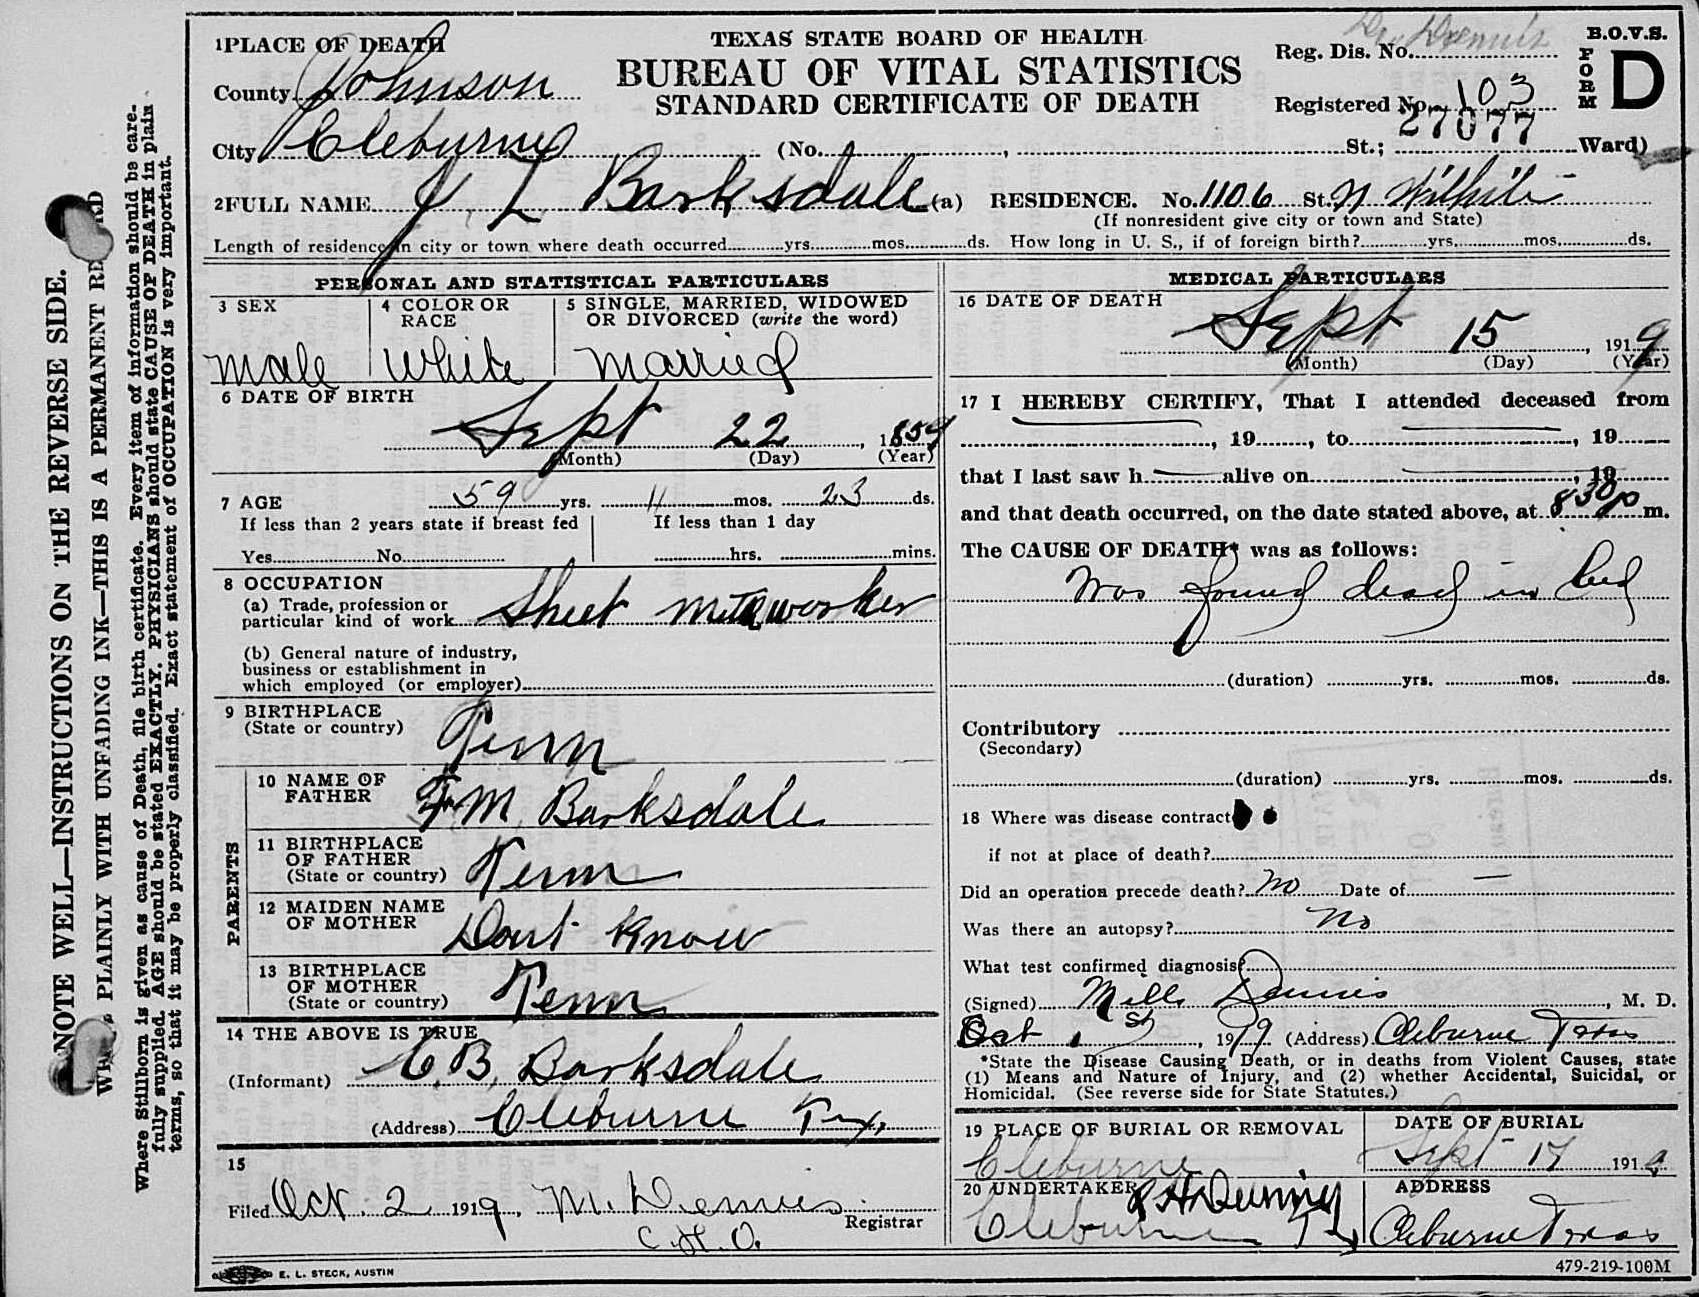 NOTE WELL—INSTRUCTIONS ON THE REVERSE SIDE.
PLAINLY WITH UNFADING INK—THIS IS A PERMANENT
Where Stillborn is given as cause of Death, file birth certificate. Every item of information should be care-
fully supplied. AGE should be stated EXACTLY. PHYSICIANS should state CAUSE OF DEATH in plain
terms, so that it may be properly classified. Exact statement of OCCUPATION is very important.
TEXAS STATE BOARD OF HEALTH
BUREAU OF VITAL STATISTICS
STANDARD CERTIFICATE OF DEATH
B.O.V.S.
FORM D
Reg. Dis. No.
Registered No. 103
27077
1 PLACE OF DEATH
County Johnson
City Cleburne (No. , St.; Ward)
2 FULL NAME J. L Barksdale (a) RESIDENCE. No. 1106 St. N Wilhite
(If nonresident give city or town and State)
Length of residence in city or town where death occurred yrs. mos. ds. How long in U. S., if of foreign birth? yrs. mos. ds.
PERSONAL AND STATISTICAL PARTICULARS
3 SEX
male
4 COLOR OR RACE
White
5 SINGLE, MARRIED, WIDOWED OR DIVORCED (write the word)
Married
6 DATE OF BIRTH
Sept 22, 1859
(Month) (Day) (Year)
7 AGE 59 yrs. 11 mos. 23 ds.
If less than 2 years state if breast fed
Yes No
If less than 1 day
hrs. mins.
8 OCCUPATION
(a) Trade, profession or
particular kind of work Sheet metal worker
(b) General nature of industry,
business or establishment in
which employed (or employer)
9 BIRTHPLACE
(State or country) Tenn
PARENTS
10 NAME OF FATHER F M Barksdale
11 BIRTHPLACE OF FATHER
(State or country) Tenn
12 MAIDEN NAME OF MOTHER Dont Know
13 BIRTHPLACE OF MOTHER
(State or country) Tenn
14 THE ABOVE IS TRUE
(Informant) C. B. Barksdale
(Address) Cleburne Tex.
15
Filed Oct. 2 1919, M. Dennis
Registrar
C. H. O.
MEDICAL PARTICULARS
16 DATE OF DEATH
Sept 15, 1919
(Month) (Day) (Year)
17 I HEREBY CERTIFY, That I attended deceased from
, 19 , to , 19
that I last saw h alive on , 19
and that death occurred, on the date stated above, at 830 p m.
The CAUSE OF DEATH* was as follows:
Was found dead in bed
(duration) yrs. mos. ds.
Contributory
(Secondary)
(duration) yrs. mos. ds.
18 Where was disease contract
if not at place of death?
Did an operation precede death? No Date of —
Was there an autopsy? No
What test confirmed diagnosis?
(Signed) Mills Dennis, M. D.
Oct 1st, 1919 (Address) Cleburne Texas
*State the Disease Causing Death, or in deaths from Violent Causes, state
(1) Means and Nature of Injury, and (2) whether Accidental, Suicidal, or
Homicidal. (See reverse side for State Statutes.)
19 PLACE OF BURIAL OR REMOVAL
Cleburne
DATE OF BURIAL
Sept 17 1919
20 UNDERTAKER
Cleburne Tx
ADDRESS
Cleburne Texas
E. L. STECK, AUSTIN
479-219-100M